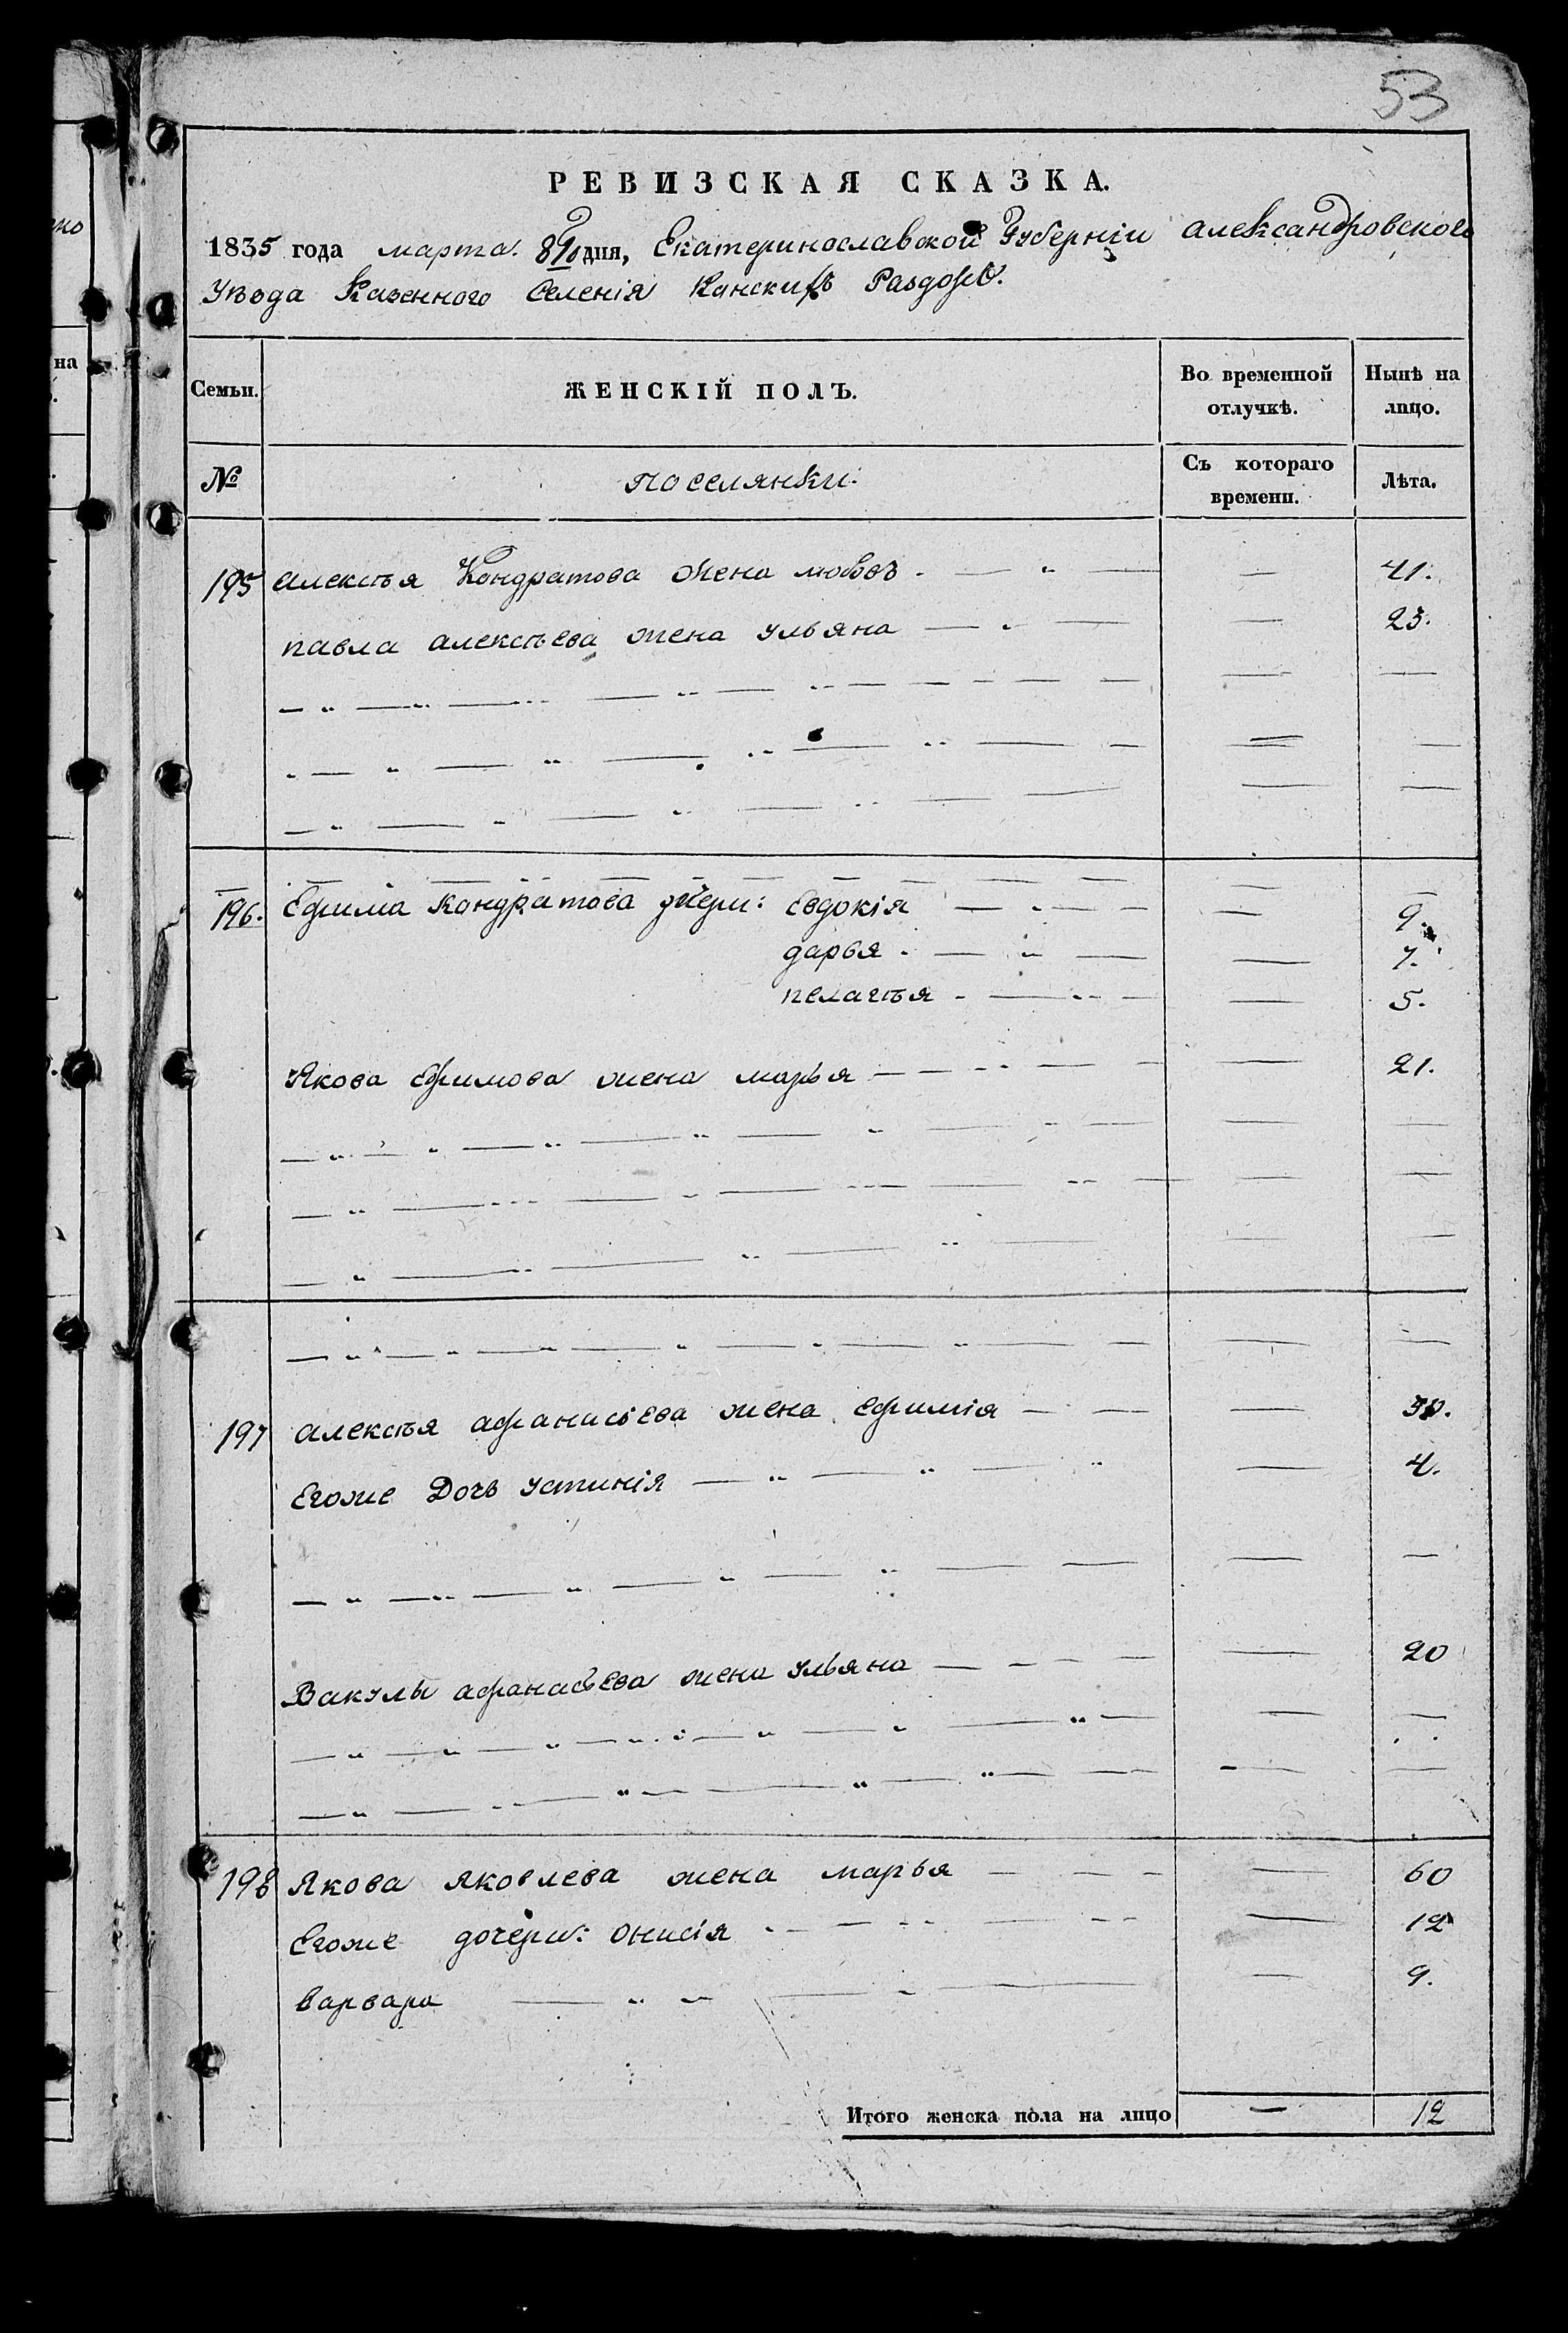 53
РЕВИЗСКАЯ СКАЗКА.
1835 года марта. 8го дня, Екатеринославской Губерніи александровского
Уѣзда Казенного Селенія Конскихъ Раздоръ.
на
Семьи. ЖЕНСКІЙ ПОЛЪ. Во временной отлучкѣ. Нынѣ на лицо.
№ поселянки. Съ котораго времени. Лѣта.
195 алексѣя Кондратова жена любовъ 41.
павла алексѣева жена ульяна 23.
196. Ефима Кондратова дчери: Евдокія 9.
дарья 7.
пелагѣя 5.
Якова Ефимова жена марья 21.
197 алексѣя афанасіева жена Ефимія 30.
Егоже Дочь устинія 4.
Вакулы афанасьева жена ульяна 20
198 Якова яковлева жена марья 60
Егоже дочери: онисія 12
варвара 9.
Итого женска пола на лицо — 12